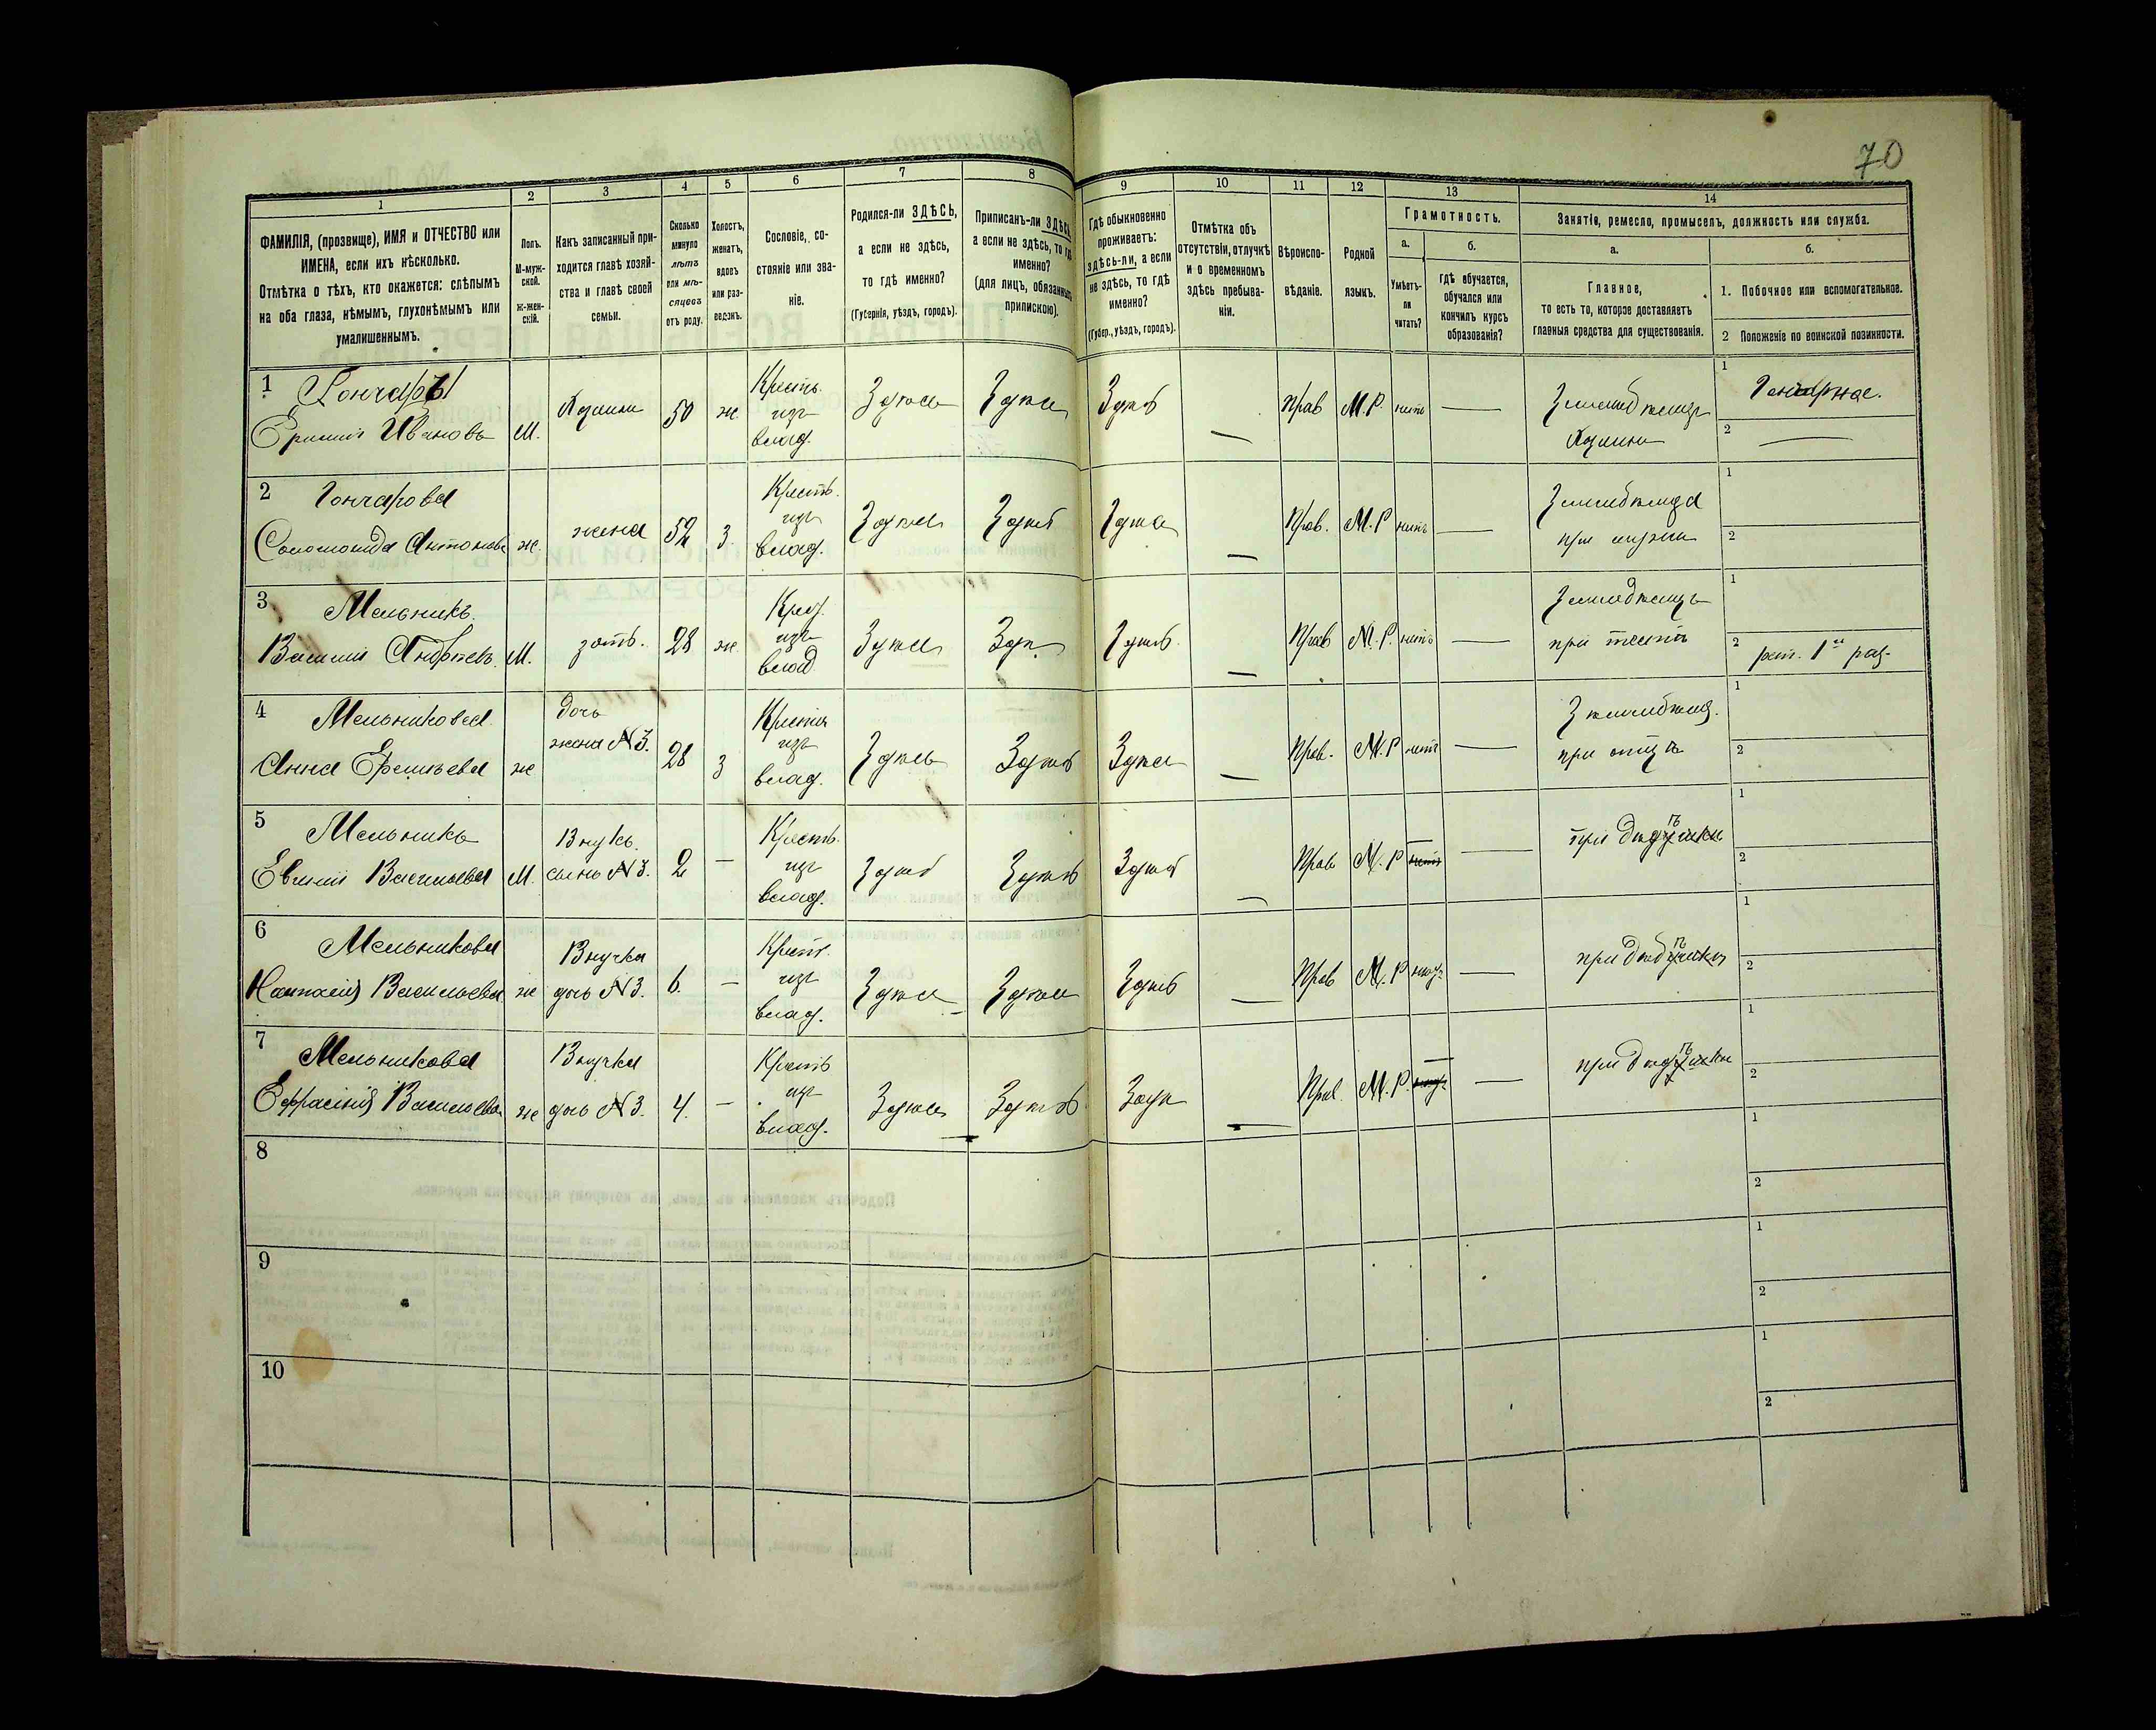 70
1 2 3 4 5 6 7 8 9 10 11 12 13 14
ФАМИЛІЯ, (прозвище), ИМЯ и ОТЧЕСТВО или
ИМЕНА, если ихъ нѣсколько.
Отмѣтка о тѣхъ, кто окажется: слѣпымъ
на оба глаза, нѣмымъ, глухонѣмымъ или
умалишеннымъ.
Полъ.
М-муж-
ской.
Ж-жен-
скій.
Какъ записанный при-
ходится главѣ хозяй-
ства и главѣ своей
семьи.
Сколько
минуло
лѣтъ
или мѣ-
сяцевъ
отъ роду.
Холостъ,
женатъ,
вдовъ
или раз-
веденъ.
Сословіе, со-
стояніе или зва-
ніе.
Родился-ли ЗДѢСЬ,
а если не здѣсь,
то гдѣ именно?
(Губернія, уѣздъ, городъ).
Приписанъ-ли ЗДѢСЬ,
а если не здѣсь, то гдѣ
именно?
(для лицъ, обязанныхъ
припискою).
Гдѣ обыкновенно
проживаетъ:
здѣсь-ли, а если
не здѣсь, то гдѣ
именно?
(Губер., уѣздъ, городъ).
Отмѣтка объ
отсутствіи, отлучкѣ
и о временномъ
здѣсь пребыва-
ніи.
Вѣроиспо-
вѣданіе.
Родной
языкъ.
Грамотность.
а.
Умѣетъ-
ли
читать?
б.
гдѣ обучается,
обучался или
кончилъ курсъ
образованія?
Занятіе, ремесло, промыселъ, должность или служба.
а.
Главное,
то есть то, которое доставляетъ
главныя средства для существованія.
б.
1. Побочное или вспомогательное.
2 Положеніе по воинской повинности.
1 Гончаръ
Ивановъ М.
Хозяинъ
50 ж.
Кресть.
изъ
влад.
Здѣсь Здѣсь Здѣсь — Прав М.Р. нѣтъ —
Земледѣлецъ
Хозяинъ
1 Гончарное.
2 —
2 Гончарова
Соломонида Антонова ж.
жена
52 з.
Кресть.
изъ
влад.
Здѣсь Здѣсь Здѣсь — Прав. М.Р нѣтъ —
Земледѣлица
при мужѣ
1
2
3 Мельникъ.
Василій Андреевъ. М.
зять.
28 ж
Крес.
изъ
влад
Здѣсь Здѣ. Здѣсь. — Прав М.Р. нѣтъ —
Земледѣлецъ
при тестѣ
1
2 рат. 1го раз.
4 Мельникова
Анна ж
дочь
жена N3.
28 з
изъ
влад.
Здѣсь Здѣсь Здѣсь — Прав. М.Р нѣтъ —
Земледѣлец.
при отцѣ
1
2
5 Мельникъ
Васильевъ М.
Внукъ.
сынъ N3.
2 —
Кресть.
изъ
влад.
Здѣсь Здѣсь Здѣсь — Прав М.Р —
при дѣдѣ
1
2
6 Мельникова
Васильева ж
Внучка
дочь N3.
6. —
Крест.
изъ
влад.
Здѣсь Здѣсь Здѣсь — Прав М.Р —
при дѣдѣ
1
2
7 Мельникова
Васильева ж
Внучка
дочь N3.
4. —
Кресть
изъ
влад.
Здѣсь Здѣсь Здѣ — Прав. М.Р. —
при дѣдѣ
1
2
8
1
2
9
1
2
10
1
2